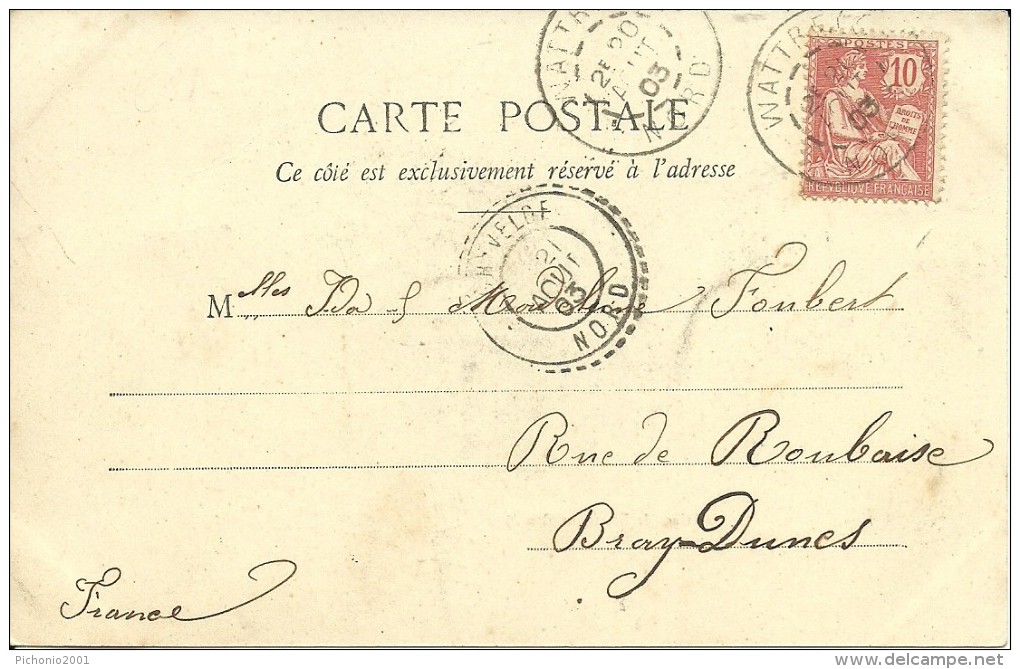 WATTR
2E 20
AOUT
03
NORD
WATTREL
03
POSTES
10
DROITS
DE
L'HOMME
REPVBLIQVE FRANÇAISE
CARTE POSTALE
Ce côté est exclusivement réservé à l'adresse
HYVELDE
21
AOUT
03
NORD
Melles Ida & Madeleine Foubert
Rue de Roubaise
Bray-Dunes
France
Pichonio2001
www.delcampe.net